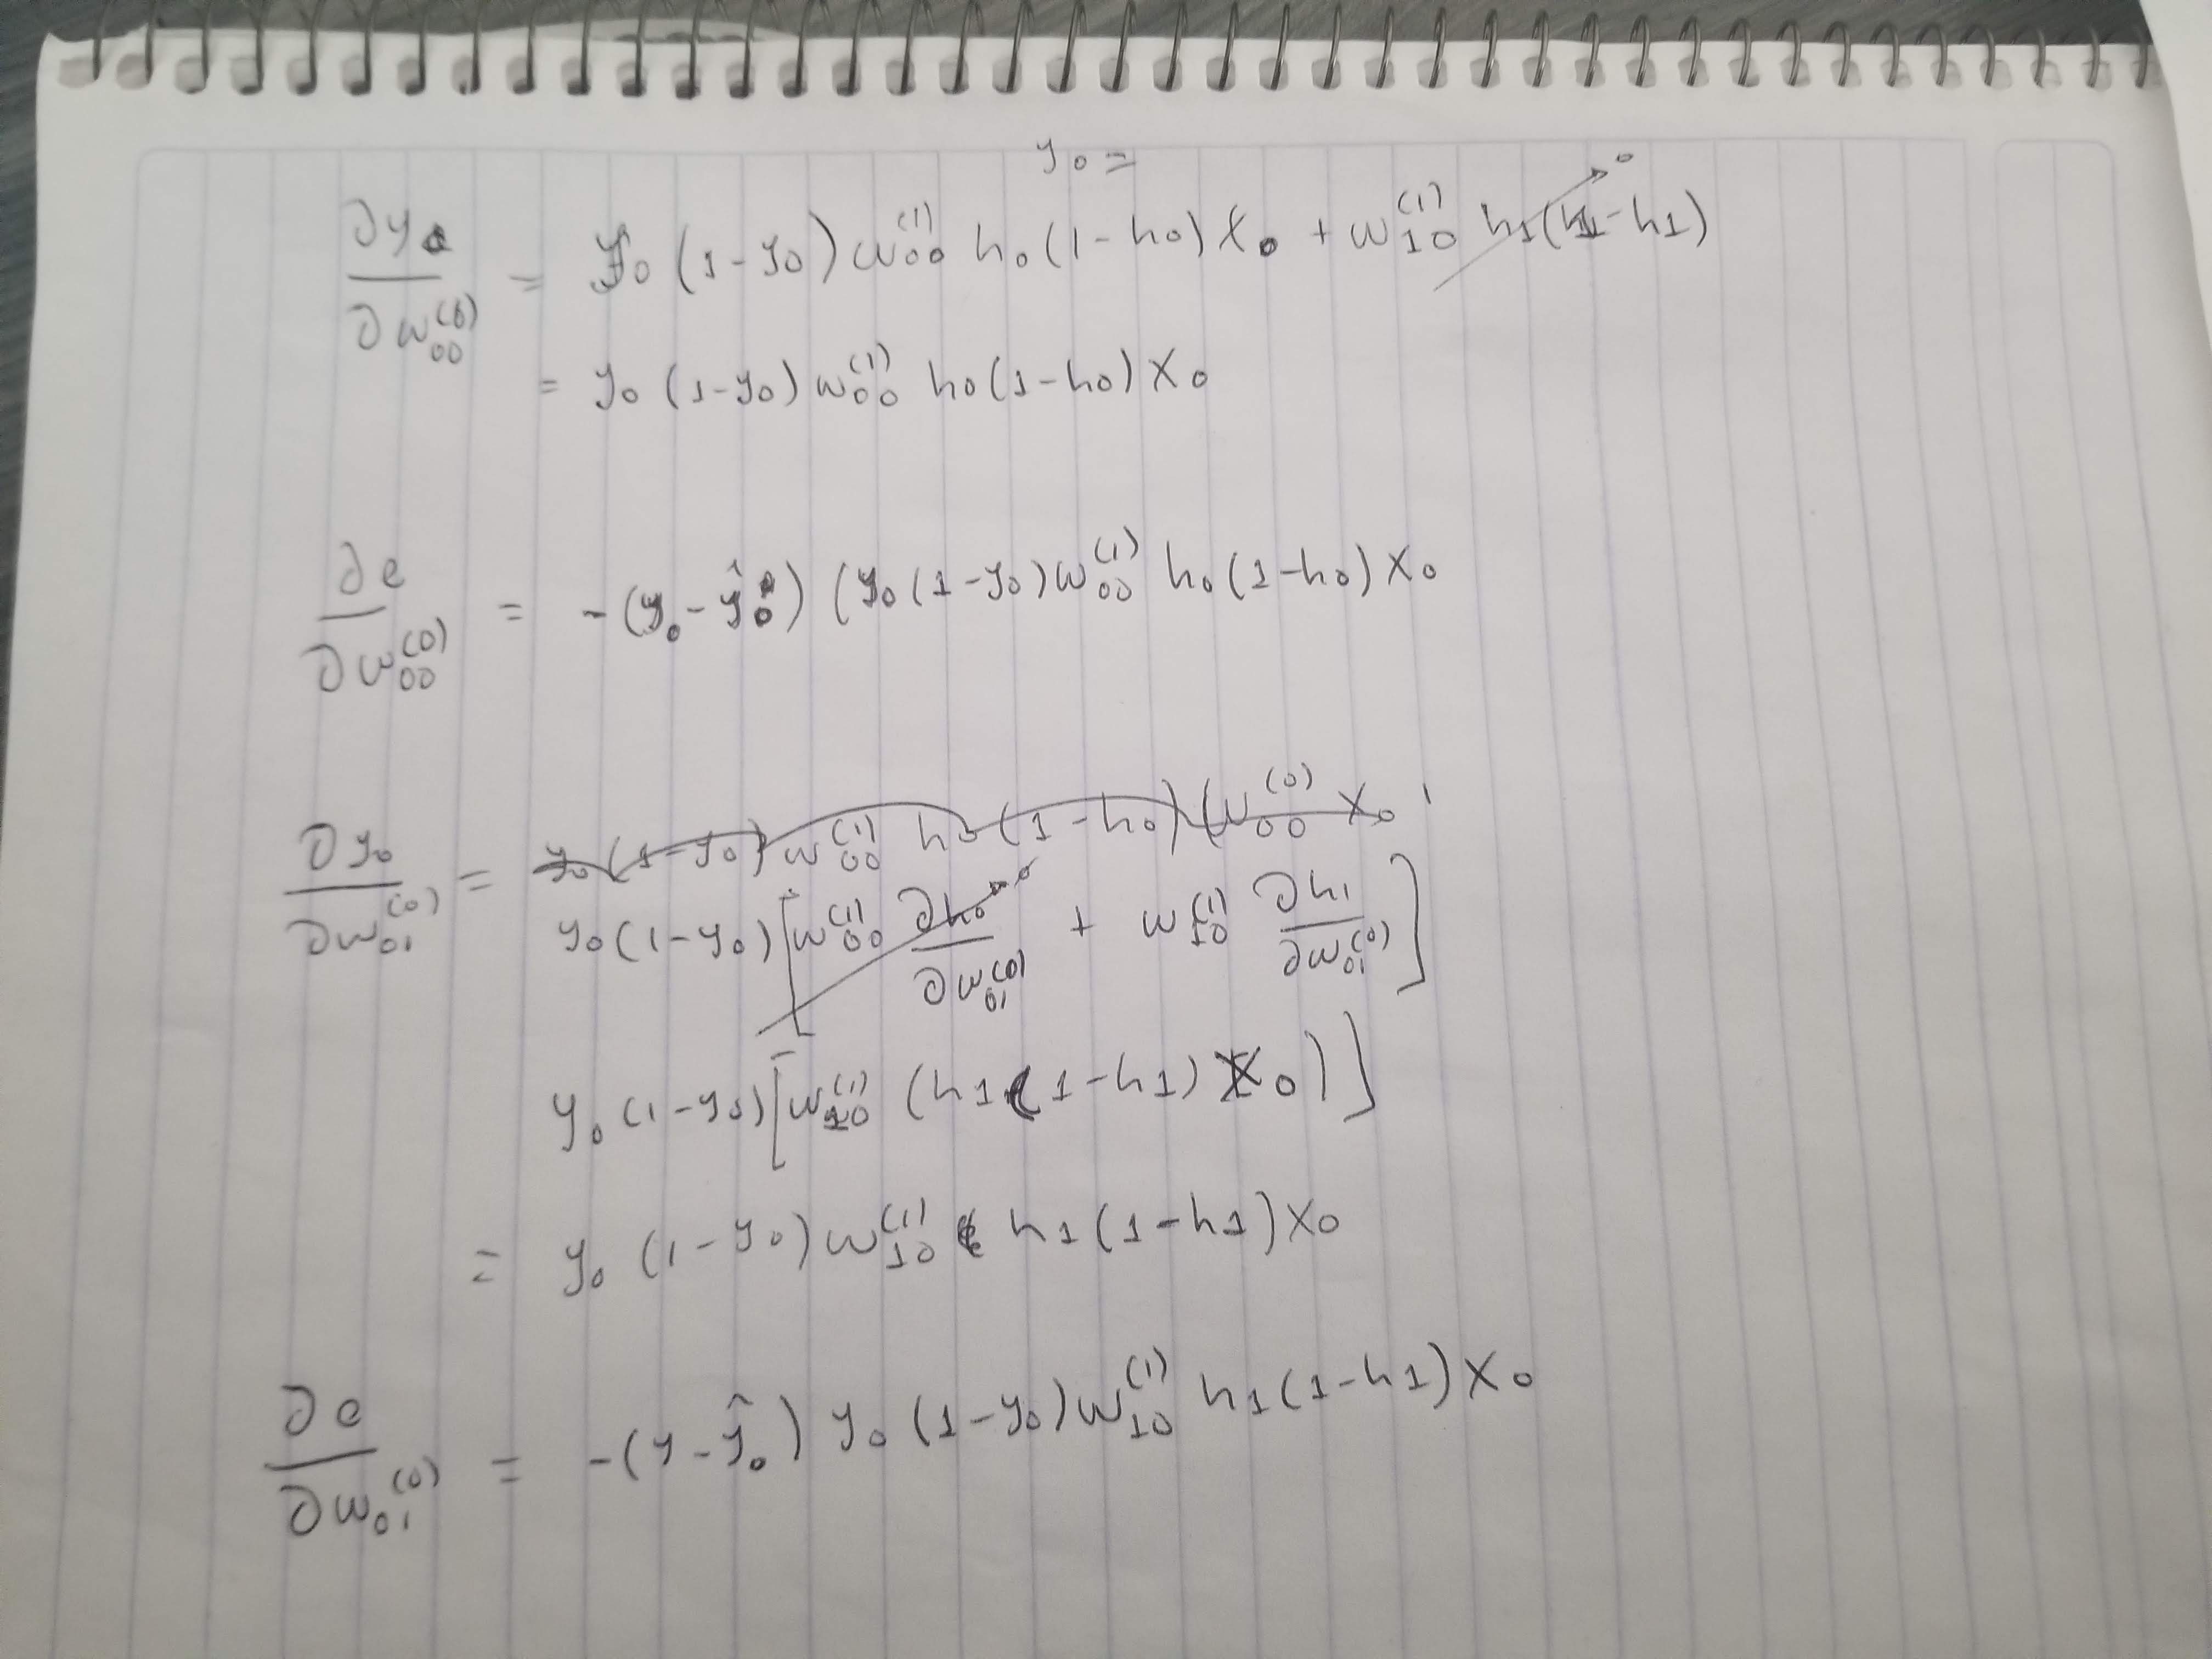 y₀ =
∂y₀/∂w₀₀⁽⁰⁾ = y₀(1-y₀)w₀₀⁽¹⁾ h₀(1-h₀)x₀ + w₁₀⁽¹⁾ h₁(1-h₁) → 0
= y₀(1-y₀)w₀₀⁽¹⁾ h₀(1-h₀)x₀
∂e/∂w₀₀⁽⁰⁾ = -(y₀-ŷ₀)(y₀(1-y₀)w₀₀⁽¹⁾ h₀(1-h₀)x₀
∂y₀/∂w₀₁⁽⁰⁾ = y₀(1-y₀)w₀₀⁽¹⁾ h₀(1-h₀)(w₀₀⁽⁰⁾ x₀
y₀(1-y₀)[w₀₀⁽¹⁾ ∂h₀/∂w₀₁⁽⁰⁾ → 0 + w₁₀⁽¹⁾ ∂h₁/∂w₀₁⁽⁰⁾]
y₀(1-y₀)[w₁₀⁽¹⁾ (h₁(1-h₁)x₀)]
= y₀(1-y₀)w₁₀⁽¹⁾ h₁(1-h₁)x₀
∂e/∂w₀₁⁽⁰⁾ = -(y-ŷ₀) y₀(1-y₀)w₁₀⁽¹⁾ h₁(1-h₁)x₀